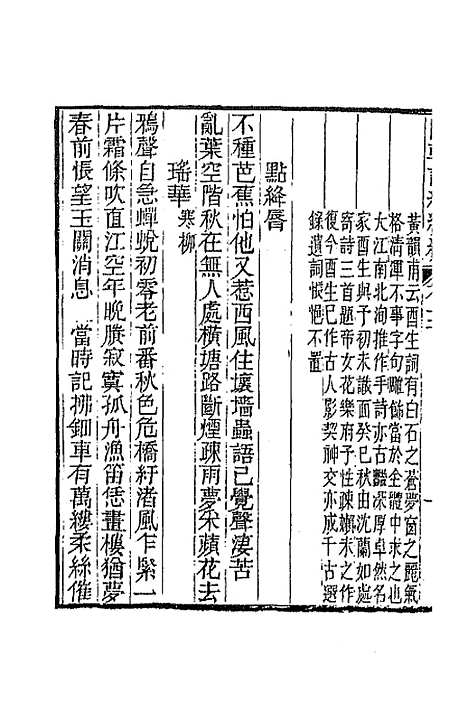 黃韻甫云酉生詞有白石之蒼夢窗之麗氣
格清渾不事字句雕飾當於全體中求之也
大江南北洵推作手詩亦古豔深厚卓然名
家酉生與予初未識面癸巳秋由沈蘭如處
寄詩三首題帝女花樂府予性疎嬾未之作
復今酉生已作古人影契神交亦成千古選
錄遺詞悵悒不置
點絳脣
不種芭蕉怕他又惹西風住壞墻蟲語已覺聲淒苦
亂葉空階秋在無人處橫塘路斷煙疎雨夢采蘋花去
瑤華寒柳
鴉聲自急蟬蛻初零老前番秋色危橋紆渚風乍緊一
片霜條吹直江空年晚賸寂寞孤舟漁笛恁畫樓猶夢
春前悵望玉關消息　當時記拂鈿車有萬縷柔絲催